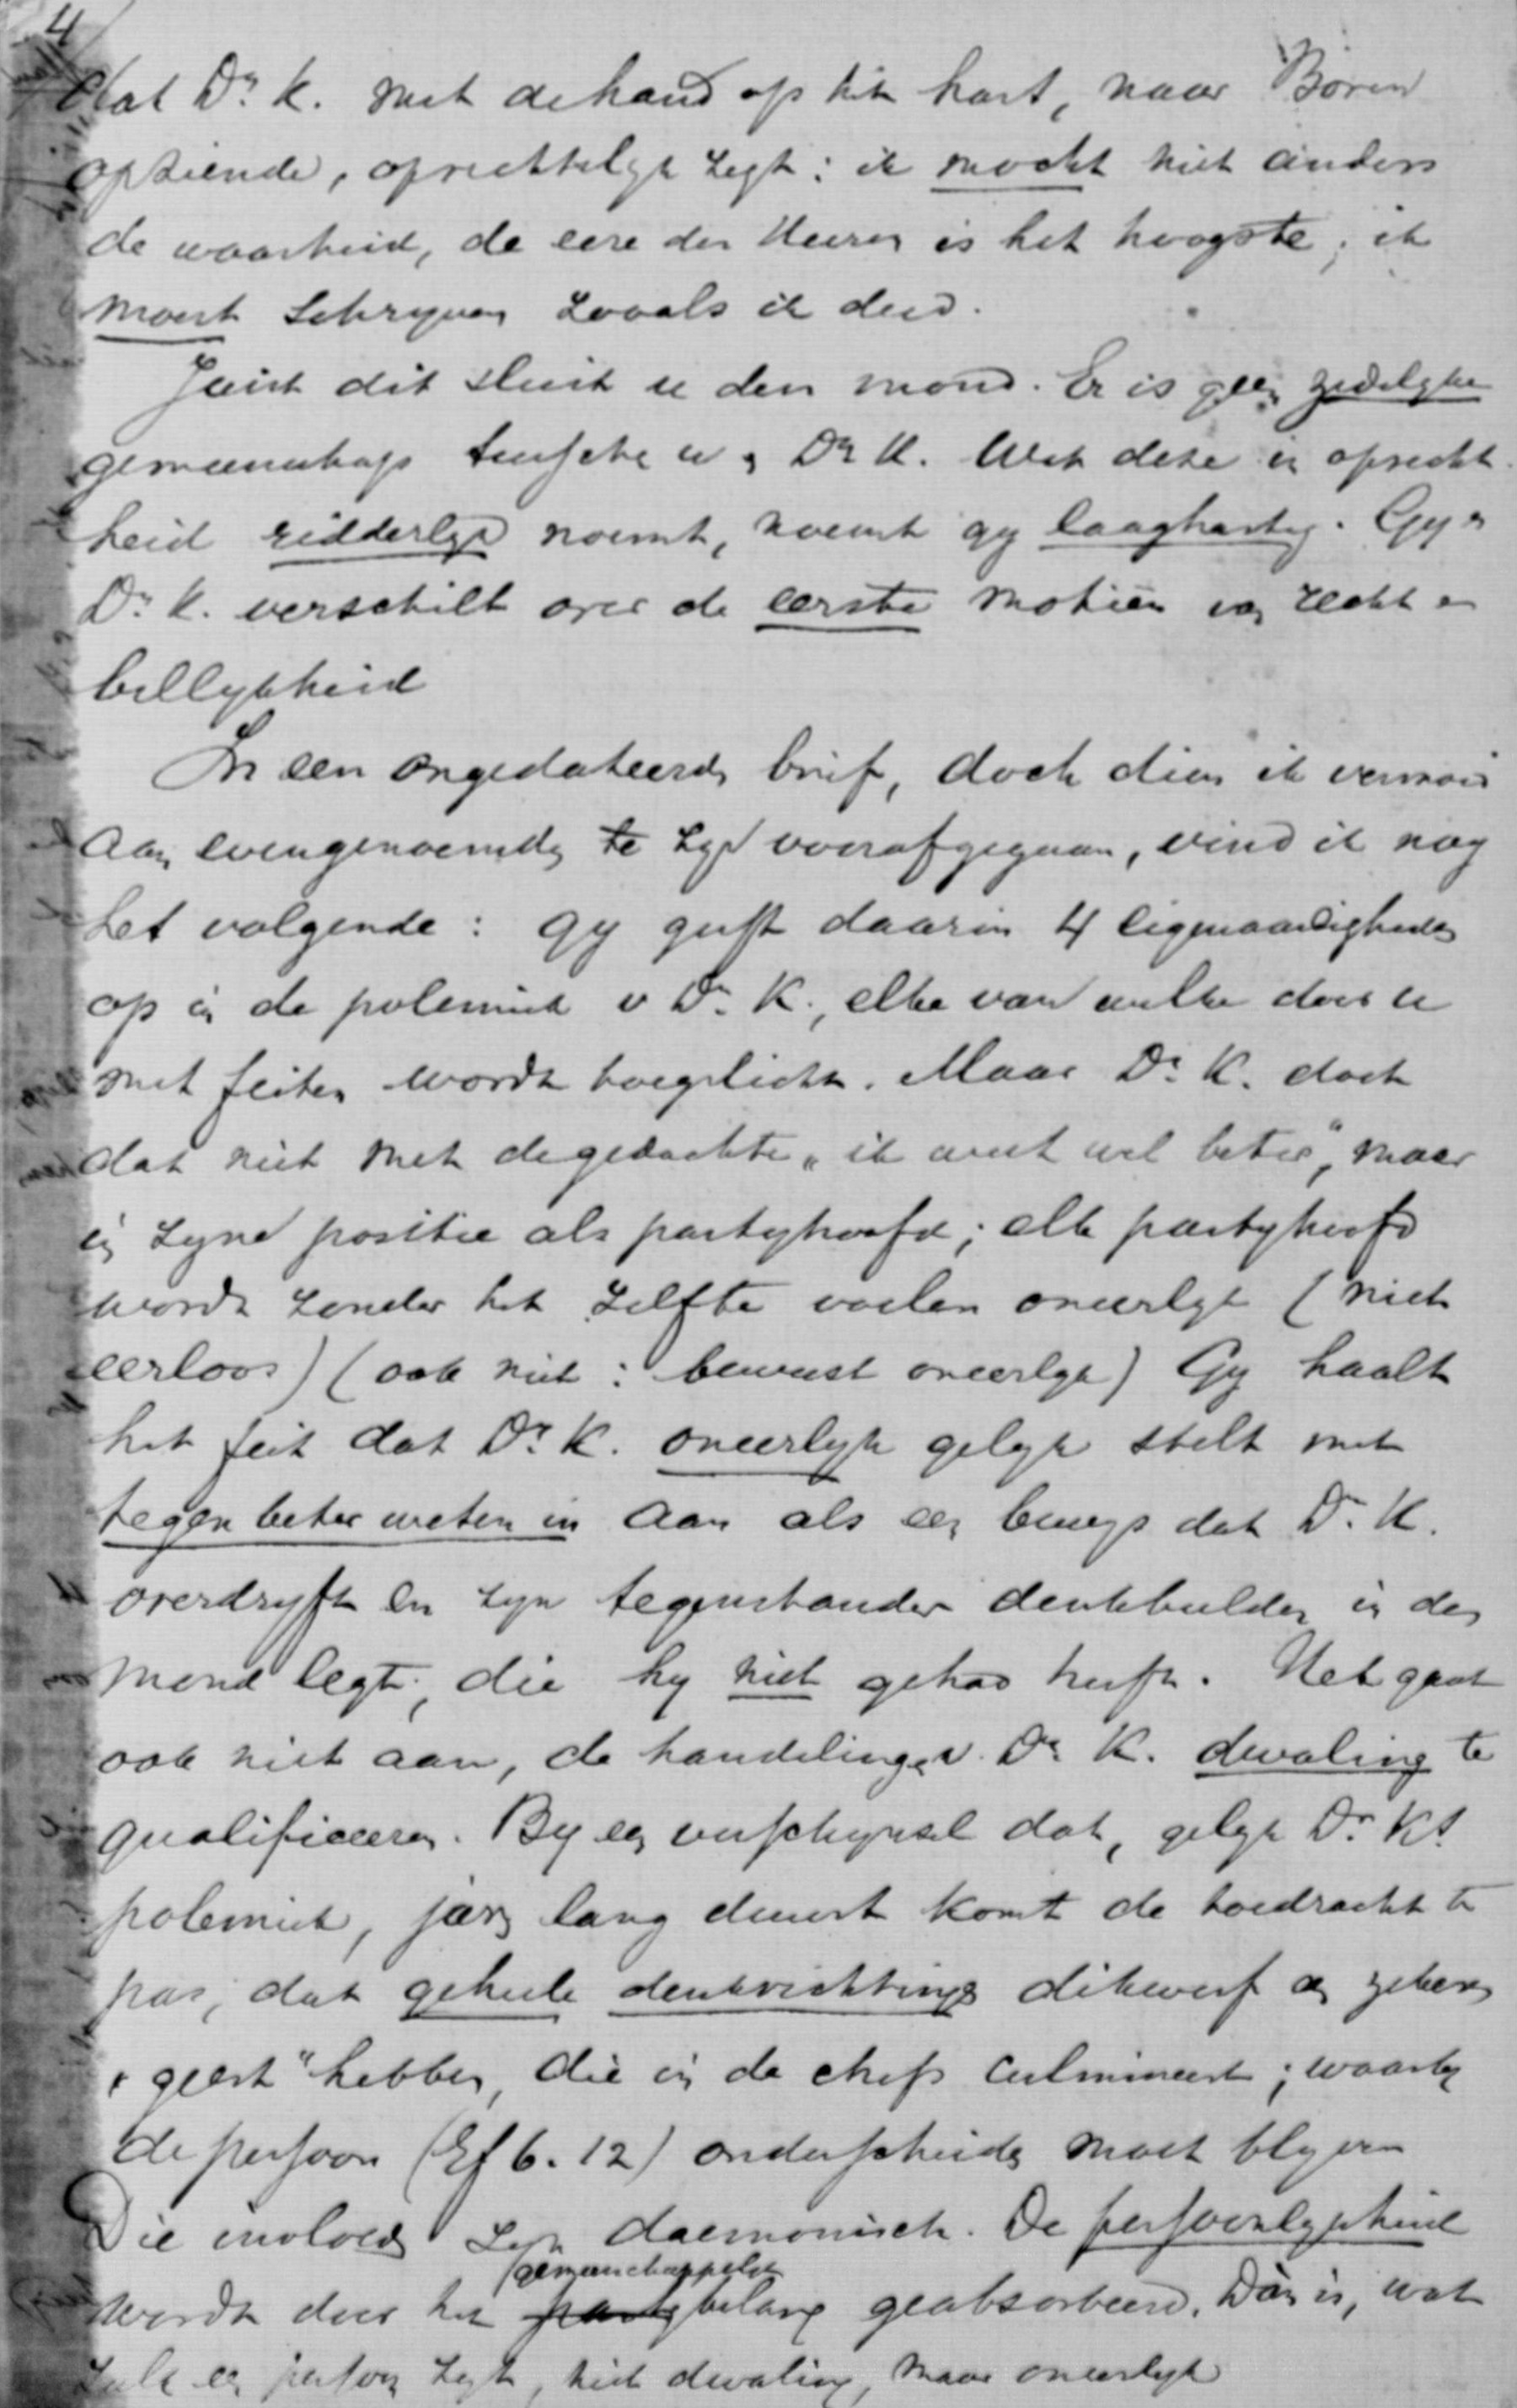 4
dat Dr. K. met de hand op het hart, naar Boven
opziende, oprechtelyk zegt: ik mocht niet anders
de waarheid, de eere des Heeren is het hoogste; ik
moest schryven zooals ik deed.
Juist dit sluit u den mond. Er is geen zedelyke
gemeenschap tusschen u en Dr K. Wat deze in oprecht-
heid ridderlyk noemt, noemt gy laaghartig. Gy en
Dr. K. verschilt over de eerste motieven van recht en
billykheid
In een ongedateerden brief, doch dien ik vermoed
aan evengenoemden te zyn voorafgegaan, vind ik nog
het volgende: gy geeft daarin 4 eigenaardigheden
op in de polemiek v Dr. K., elke van welke door u
met feiten wordt toegelicht. Maar Dr. K. doet
dat niet met de gedachte „ik weet wel beter", maar
in zyne positie als partyhoofd; elk partyhoofd
wordt zonder het zelf te voelen oneerlyk (niet
eerloos) (ook niet: bewust oneerlyk) Gy haalt
het feit dat Dr. K. oneerlyk gelyk stelt met
tegen beter weten in aan als een bewys dat Dr. K.
overdryft en zyn tegenstander denkbeelden in den
mond legt, die hy niet gehad heeft. Het gaat
ook niet aan, de handelingen v. Dr. K. dwaling te
qualificeeren. By een verschynsel dat, gelyk Dr. K's
polemiek, jaren lang duurt komt de toedracht te
pas, dat geheele denkrichtingen dikwerf een zekeren
„geest" hebben, die in de chefs culmineert; waarby
de persoon (Ef 6.12) onderscheiden moet blyven
Die invloeden zyn daemonisch. De persoonlykheid
gemeenschappelyk
wordt door het party belang geabsorbeerd. Dan is, wat
zulk een persoon zegt, niet dwaling, maar oneerlyk